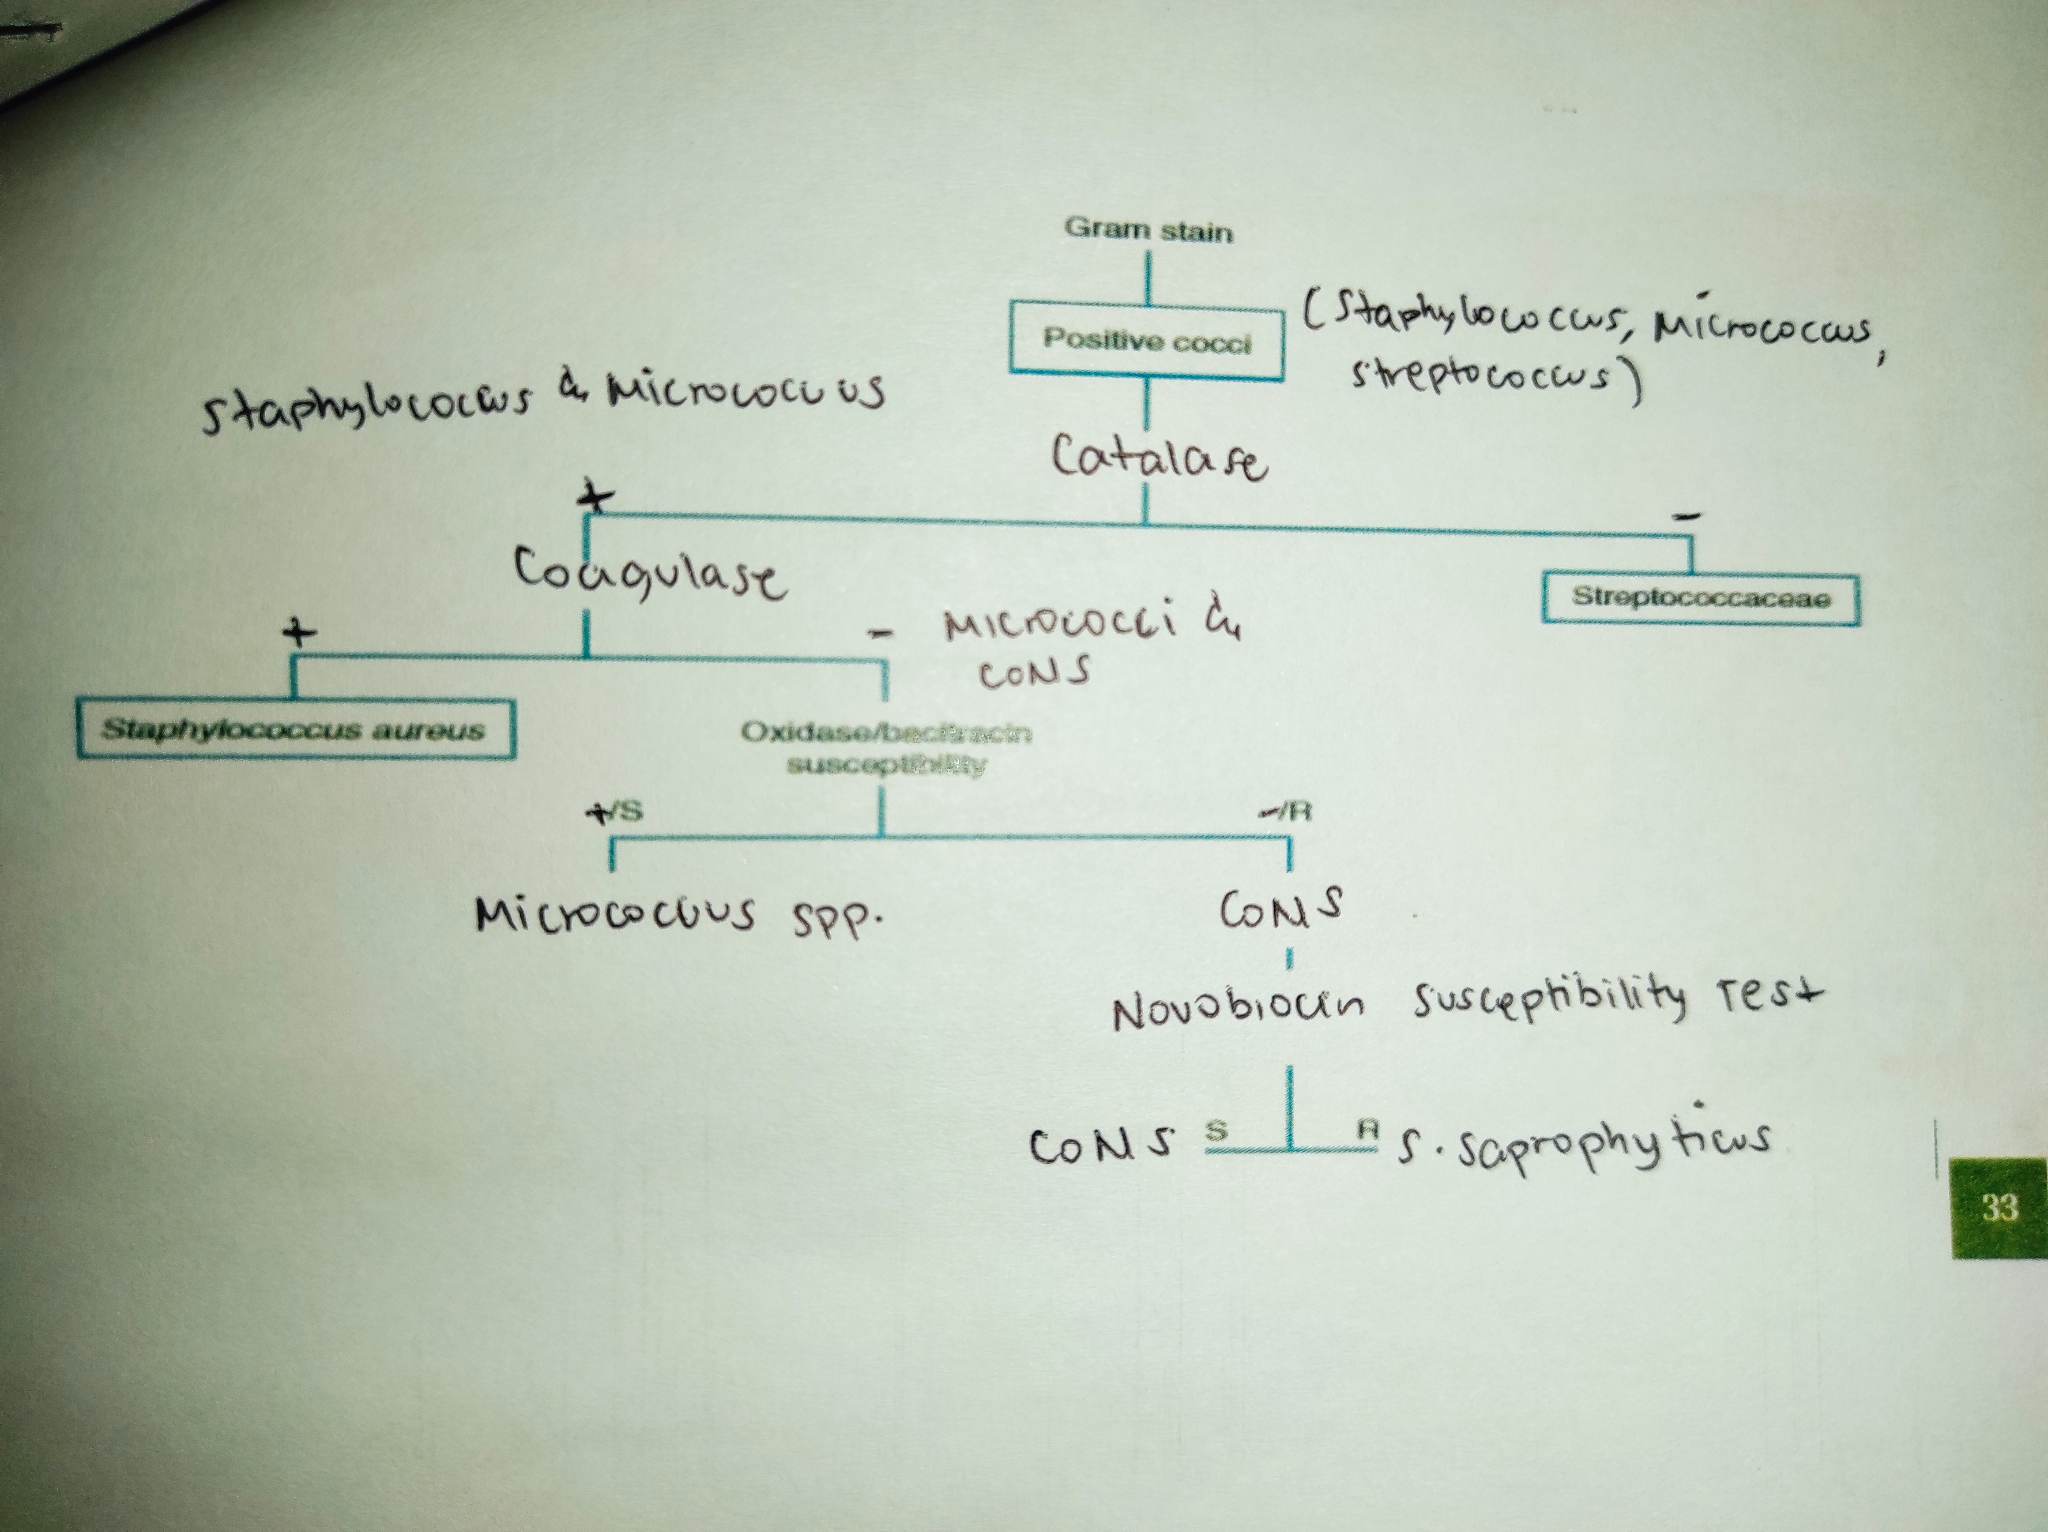 Gram stain
Positive cocci
(Staphylococcus, Micrococcus,
streptococcus)
Staphylococcus & Micrococcus
Catalase
+
-
Coagulase
Streptococcaceae
+
- Micrococci &
CONS
Staphylococcus aureus
Oxidase/bacitracin
susceptibility
+/S
-/R
Micrococcus spp.
CONS
Novobiocin susceptibility Test
CONS S
R S. saprophyticus
33